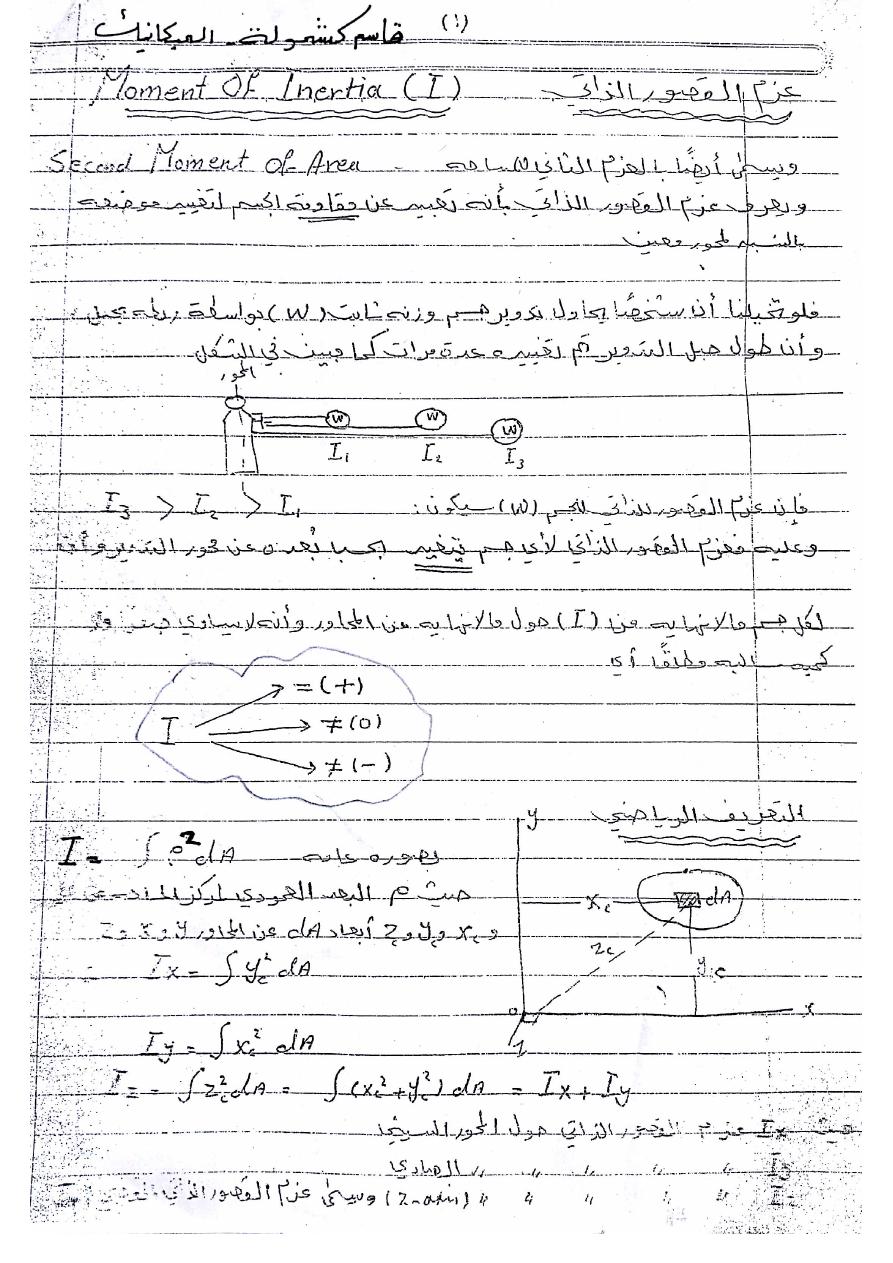 (١)
قاسم كشمولة - الميكانيك
عزم القصور الذاتي Moment Of Inertia (I)
ويسمى أيضًا بالعزم الثاني للمساحه - Second Moment of Area
ويعرف عزم القصور الذاتي بأنه تعبير عن مقاومة الجسم لتغيير موضعه
بالنسبه لمحور معين
فلو تخيلنا أن شخصًا يحاول تدوير جسم وزنه ثابت (W) بواسطة ربطه بحبل
وأن طول حبل التدوير تم تغييره عدة مرات كما مبين في الشكل
المحور
W W W
I₁ I₂ I₃
فإن عزم القصور الذاتي للجسم (W) سيكون: I₃ > I₂ > I₁
وعليه فعزم القصور الذاتي لأي جسم يتغير بحسب بُعده عن محور التدوير وأن
لكل جسم مالانهايه من (I) حول مالانهايه من المحاور وأنه لا يساوي
كميه سالبه مطلقًا أي
= (+)
I ≠ (0)
≠ (-)
التعريف الرياضي
y
بصوره عامه I = ∫ρ²dA
dA
xc
حيث ρ البعد العمودي لمركز المساحه عن
و xc و yc و zc أبعاد dA عن المحاور y و x و z
zc
yc
Ix = ∫yc² dA
o x
z
Iy = ∫xc² dA
Iz = ∫zc²dA = ∫(xc²+yc²) dA = Ix + Iy
حيث Ix عزم القصور الذاتي حول المحور السيني
Iy 〃 〃 〃 〃 الصادي
Iz 〃 〃 〃 〃 (z-axis) ويسمى عزم القصور الذاتي